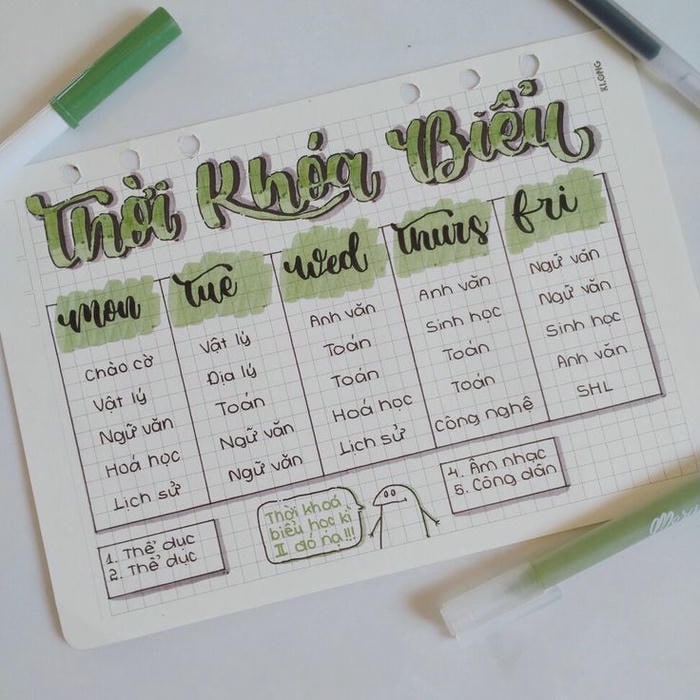 KLONG
Thời Khóa Biểu
Mon
Tue
Wed
Thurs
Fri
Chào cờ
Vật lý
Ngữ văn
Hoá học
Lịch sử
Vật lý
Địa lý
Toán
Ngữ văn
Ngữ văn
Anh văn
Toán
Toán
Hoá học
Lịch sử
Anh văn
Sinh học
Toán
Toán
Công nghệ
Ngữ văn
Ngữ văn
Sinh học
Anh văn
SHL
1. Thể dục
2. Thể dục
Thời khoá
biểu học kì
II đó nạ!!!
4. Âm nhạc
5. Công dân